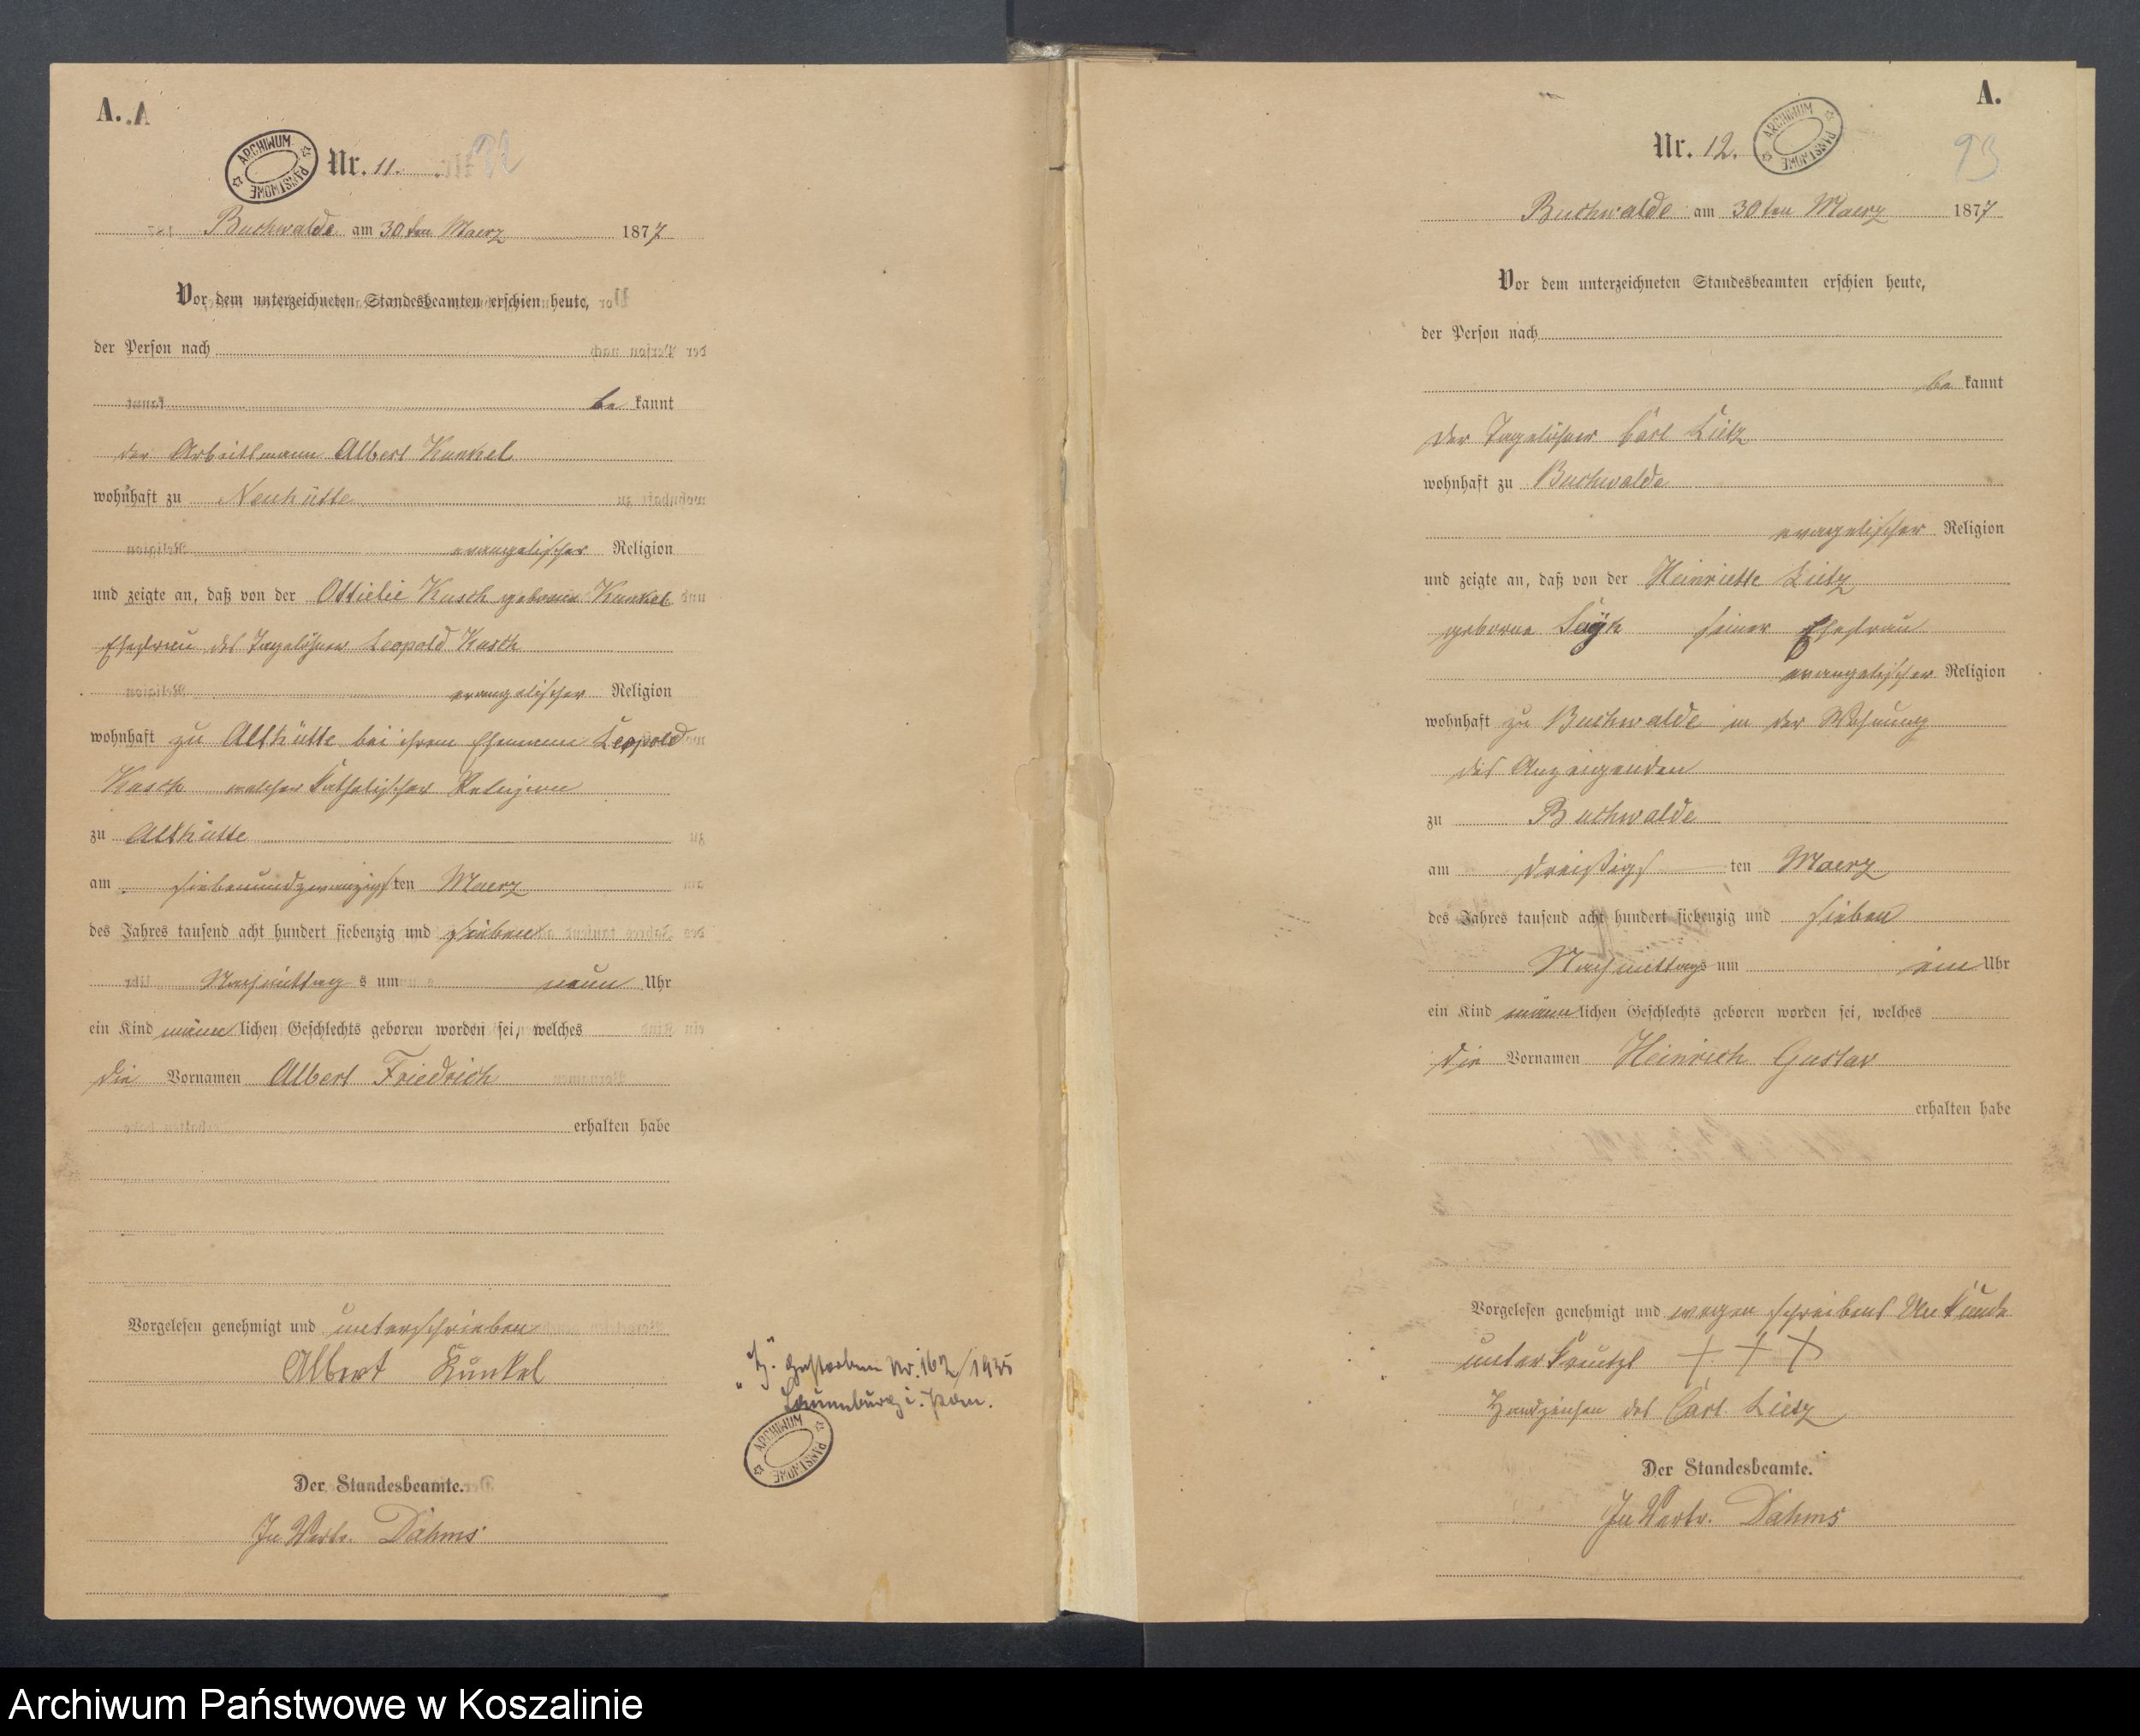 A.
ARCHIWUM PAŃSTWOWE
Nr. 11.
Buchwalde am 30ten Maerz 1877
Vor dem unterzeichneten Standesbeamten erschien heute,
der Person nach
be kannt
der Arbeitsmann Albert Kunkel
wohnhaft zu Neuhütte
evangelischer Religion
und zeigte an, daß von der Ottielie Kusch geborene Kunkel
Ehefrau des Tagelöhner Leopold Kusch
evangelischer Religion
wohnhaft zu Althütte bei ihrem Ehemann Leopold
Kusch welcher Katholischer Religion
zu Althütte
am siebenundzwanzigsten Maerz
des Jahres tausend acht hundert siebenzig und sieben
Nachmittag s um neun Uhr
ein Kind männ lichen Geschlechts geboren worden sei, welches
die Vornamen Albert Friedrich
erhalten habe
Vorgelesen genehmigt und unterschrieben
Albert Kunkel
Der Standesbeamte.
In Vertr. Dahms
gestorben Nr. 162/1935
Lauenburg i. Pom.
ARCHIWUM PAŃSTWOWE
A.
Nr. 12.
ARCHIWUM PAŃSTWOWE
93
Buchwalde am 30ten Maerz 1877
Vor dem unterzeichneten Standesbeamten erschien heute,
der Person nach
be kannt
der Tagelöhner Carl Lietz
wohnhaft zu Buchwalde
evangelischer Religion
und zeigte an, daß von der Heinriette Lietz
geborne seiner Ehefrau
evangelischer Religion
wohnhaft zu Buchwalde in der Wohnung
des Anzeigenden
zu Buchwalde
am dreißigs ten Maerz
des Jahres tausend acht hundert siebenzig und sieben
Nachmittags um ein Uhr
ein Kind männ lichen Geschlechts geboren worden sei, welches
die Vornamen Heinrich Gustav
erhalten habe
Vorgelesen genehmigt und wegen schreibens Unkunde
unterkreutzt + + +
Handzeichen des Carl Lietz
Der Standesbeamte.
In Vertr. Dahms
Archiwum Państwowe w Koszalinie